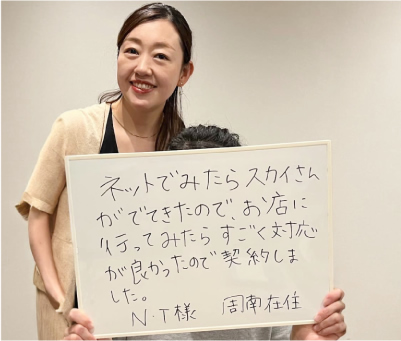 ネットでみたらスカイさん
がでてきたので、お店に
行ってみたらすごく対応
が良かったので契約しま
した。
N・T様 周南在住